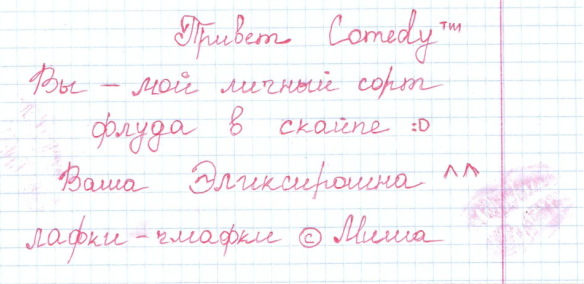 Привет Comedy™
Вы – мой личный сорт
флуда в скайпе :D
Ваша Эликсирошна ^^
лафки-чмафки © Миша